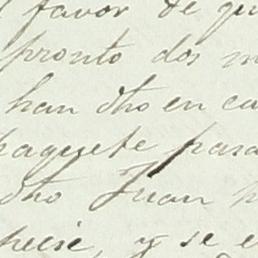 favor de
pronto dos
han dho en ca
paquete para
dho Juan
pecie, y se